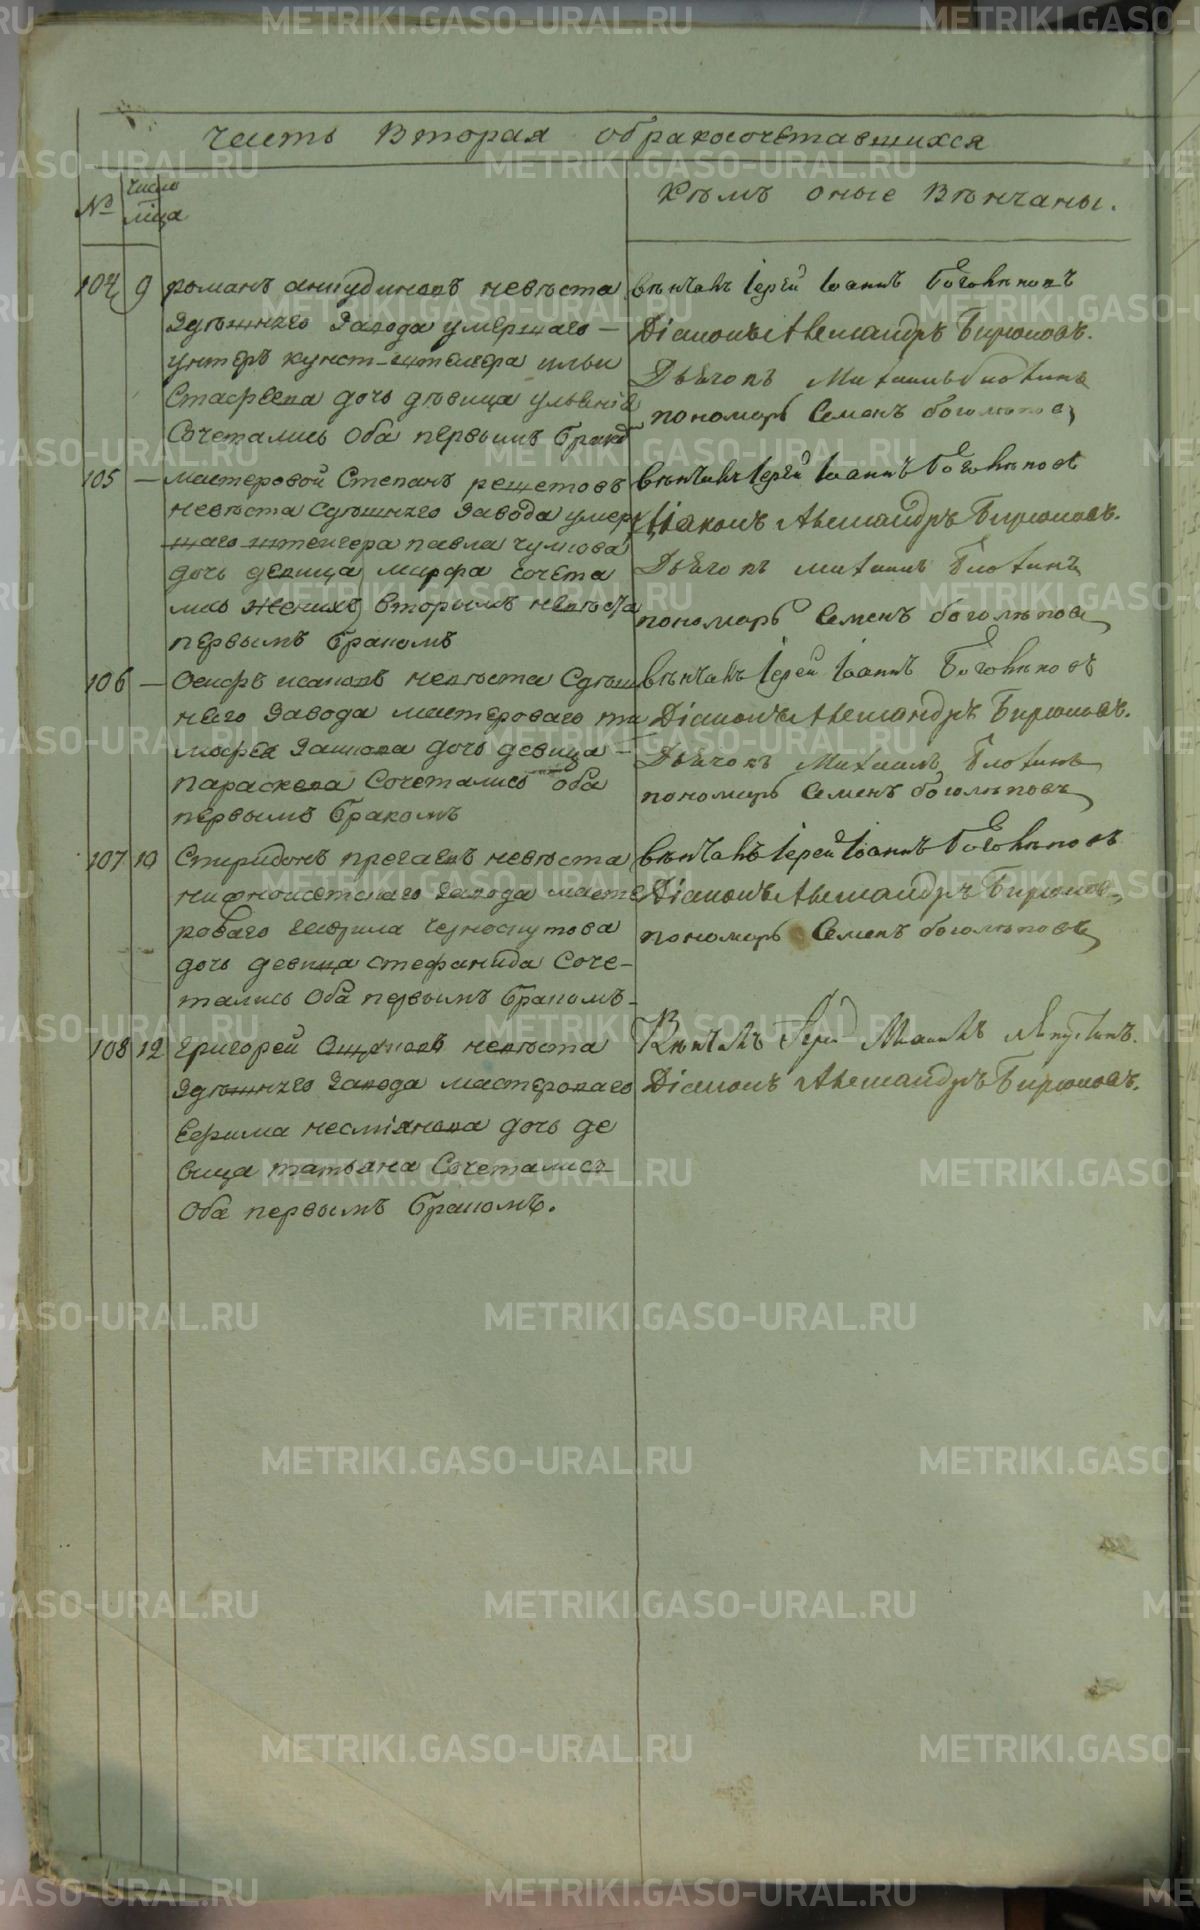 часть Вторая обракосочетавшихся
№
число
мца
Кѣмъ оные Вѣнчаны.
104 9 романъ анкудиновъ невѣста
Здѣшнѣго Завода умершаго —
унтеръ кунст-штейгера ильи
дочь дѣвица ульяния
Сочетались Оба первымъ брако
вѣнчалъ Іерей Іоаннъ Боголѣповъ
Діаконъ Александръ Бирюковъ.
Дьячокъ Михаилъ
пономарь Семенъ боголѣповъ
105 — мастеровой Степанъ решетовъ
невѣста Сдѣшнѣго Завода умер
шаго штейгера павла
дочь девица марфа сочета
лись Женихъ Вторымъ невѣста
первымъ бракомъ
вѣнчалъ Іерей Іоаннъ Боголѣповъ
Діаконъ Александръ Бирюковъ.
Дьячокъ михаилъ
пономарь Семенъ боголѣповъ
106 — Осифъ исаковъ невѣста Сдѣш
нѣго Завода мастероваго ти
мофея дочь девица —
параскева Сочетались оба
первымъ бракомъ
вѣнчалъ Іерей Іоаннъ Боголѣповъ
Діаконъ Александръ Бирюковъ.
Дьячокъ Михаилъ
пономарь Семенъ боголѣповъ
107 10 Спиридонъ невѣста
нижноисетскаго Завода масте
роваго гаврила Черноскутова
дочь девица стефанида Соче-
тались Оба первымъ бракомъ-
вѣнчалъ Іерей Іоаннъ Боголѣповъ
Діаконъ Александръ Бирюковъ
пономарь Семенъ боголѣповъ
108 12 григорей невѣста
Здѣшнѣго Завода мастероваго
Ефима дочь де
вица татьяна Сочетались
Оба первымъ бракомъ.
Вѣнчалъ Іерей
Діаконъ Александръ Бирюковъ.
METRIKI.GASO-URAL.RU